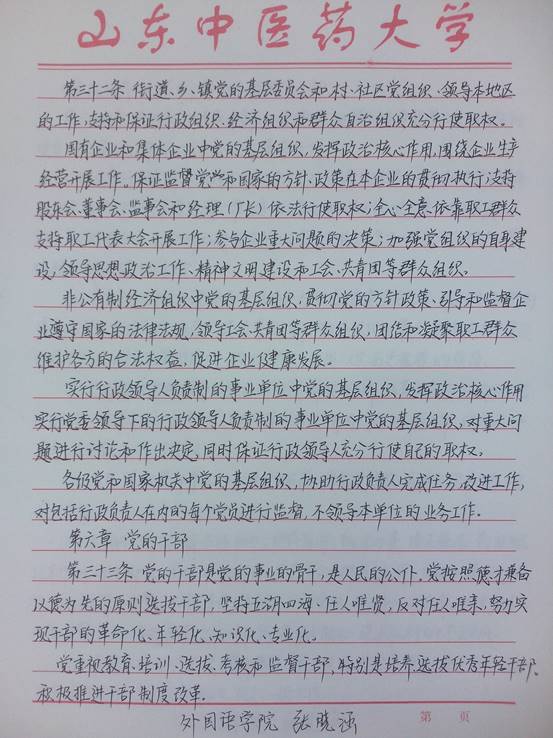 山东中医药大学
第三十二条 街道、乡、镇党的基层委员会和村、社区党组织、领导本地区
的工作,支持和保证行政组织、经济组织和群众自治组织充分行使职权。
国有企业和集体企业中党的基层组织,发挥政治核心作用,围绕企业生产
经营开展工作。保证监督党和国家的方针、政策在本企业的贯彻执行;支持
股东会、董事会、监事会和经理(厂长)依法行使职权;全心全意依靠职工群众
支持职工代表大会开展工作;参与企业重大问题的决策;加强党组织的自身建
设,领导思想政治工作、精神文明建设和工会、共青团等群众组织。
非公有制经济组织中党的基层组织,贯彻党的方针政策、引导和监督企
业遵守国家的法律法规,领导工会共青团等群众组织,团结和凝聚职工群众
维护各方的合法权益,促进企业健康发展。
实行行政领导人负责制的事业单位中党的基层组织,发挥政治核心作用
实行党委领导下的行政领导人负责制的事业单位中党的基层组织,对重大问
题进行讨论和作出决定,同时保证行政领导人充分行使自己的职权。
各级党和国家机关中党的基层组织、协助行政负责人完成任务,改进工作,
对包括行政负责人在内的每个党员进行监督,不领导本单位的业务工作。
第六章 党的干部
第三十三条 党的干部是党的事业的骨干,是人民的公仆。党按照德才兼备
以德为先的原则选拔干部,坚持五湖四海、任人唯贤,反对任人唯亲,努力实
现干部的革命化、年轻化、知识化、专业化。
党重视教育、培训、选拔、考核和监督干部,特别是培养、选拔优秀年轻干部、
积极推进干部制度改革.
外国语学院 张晓涵
第 页